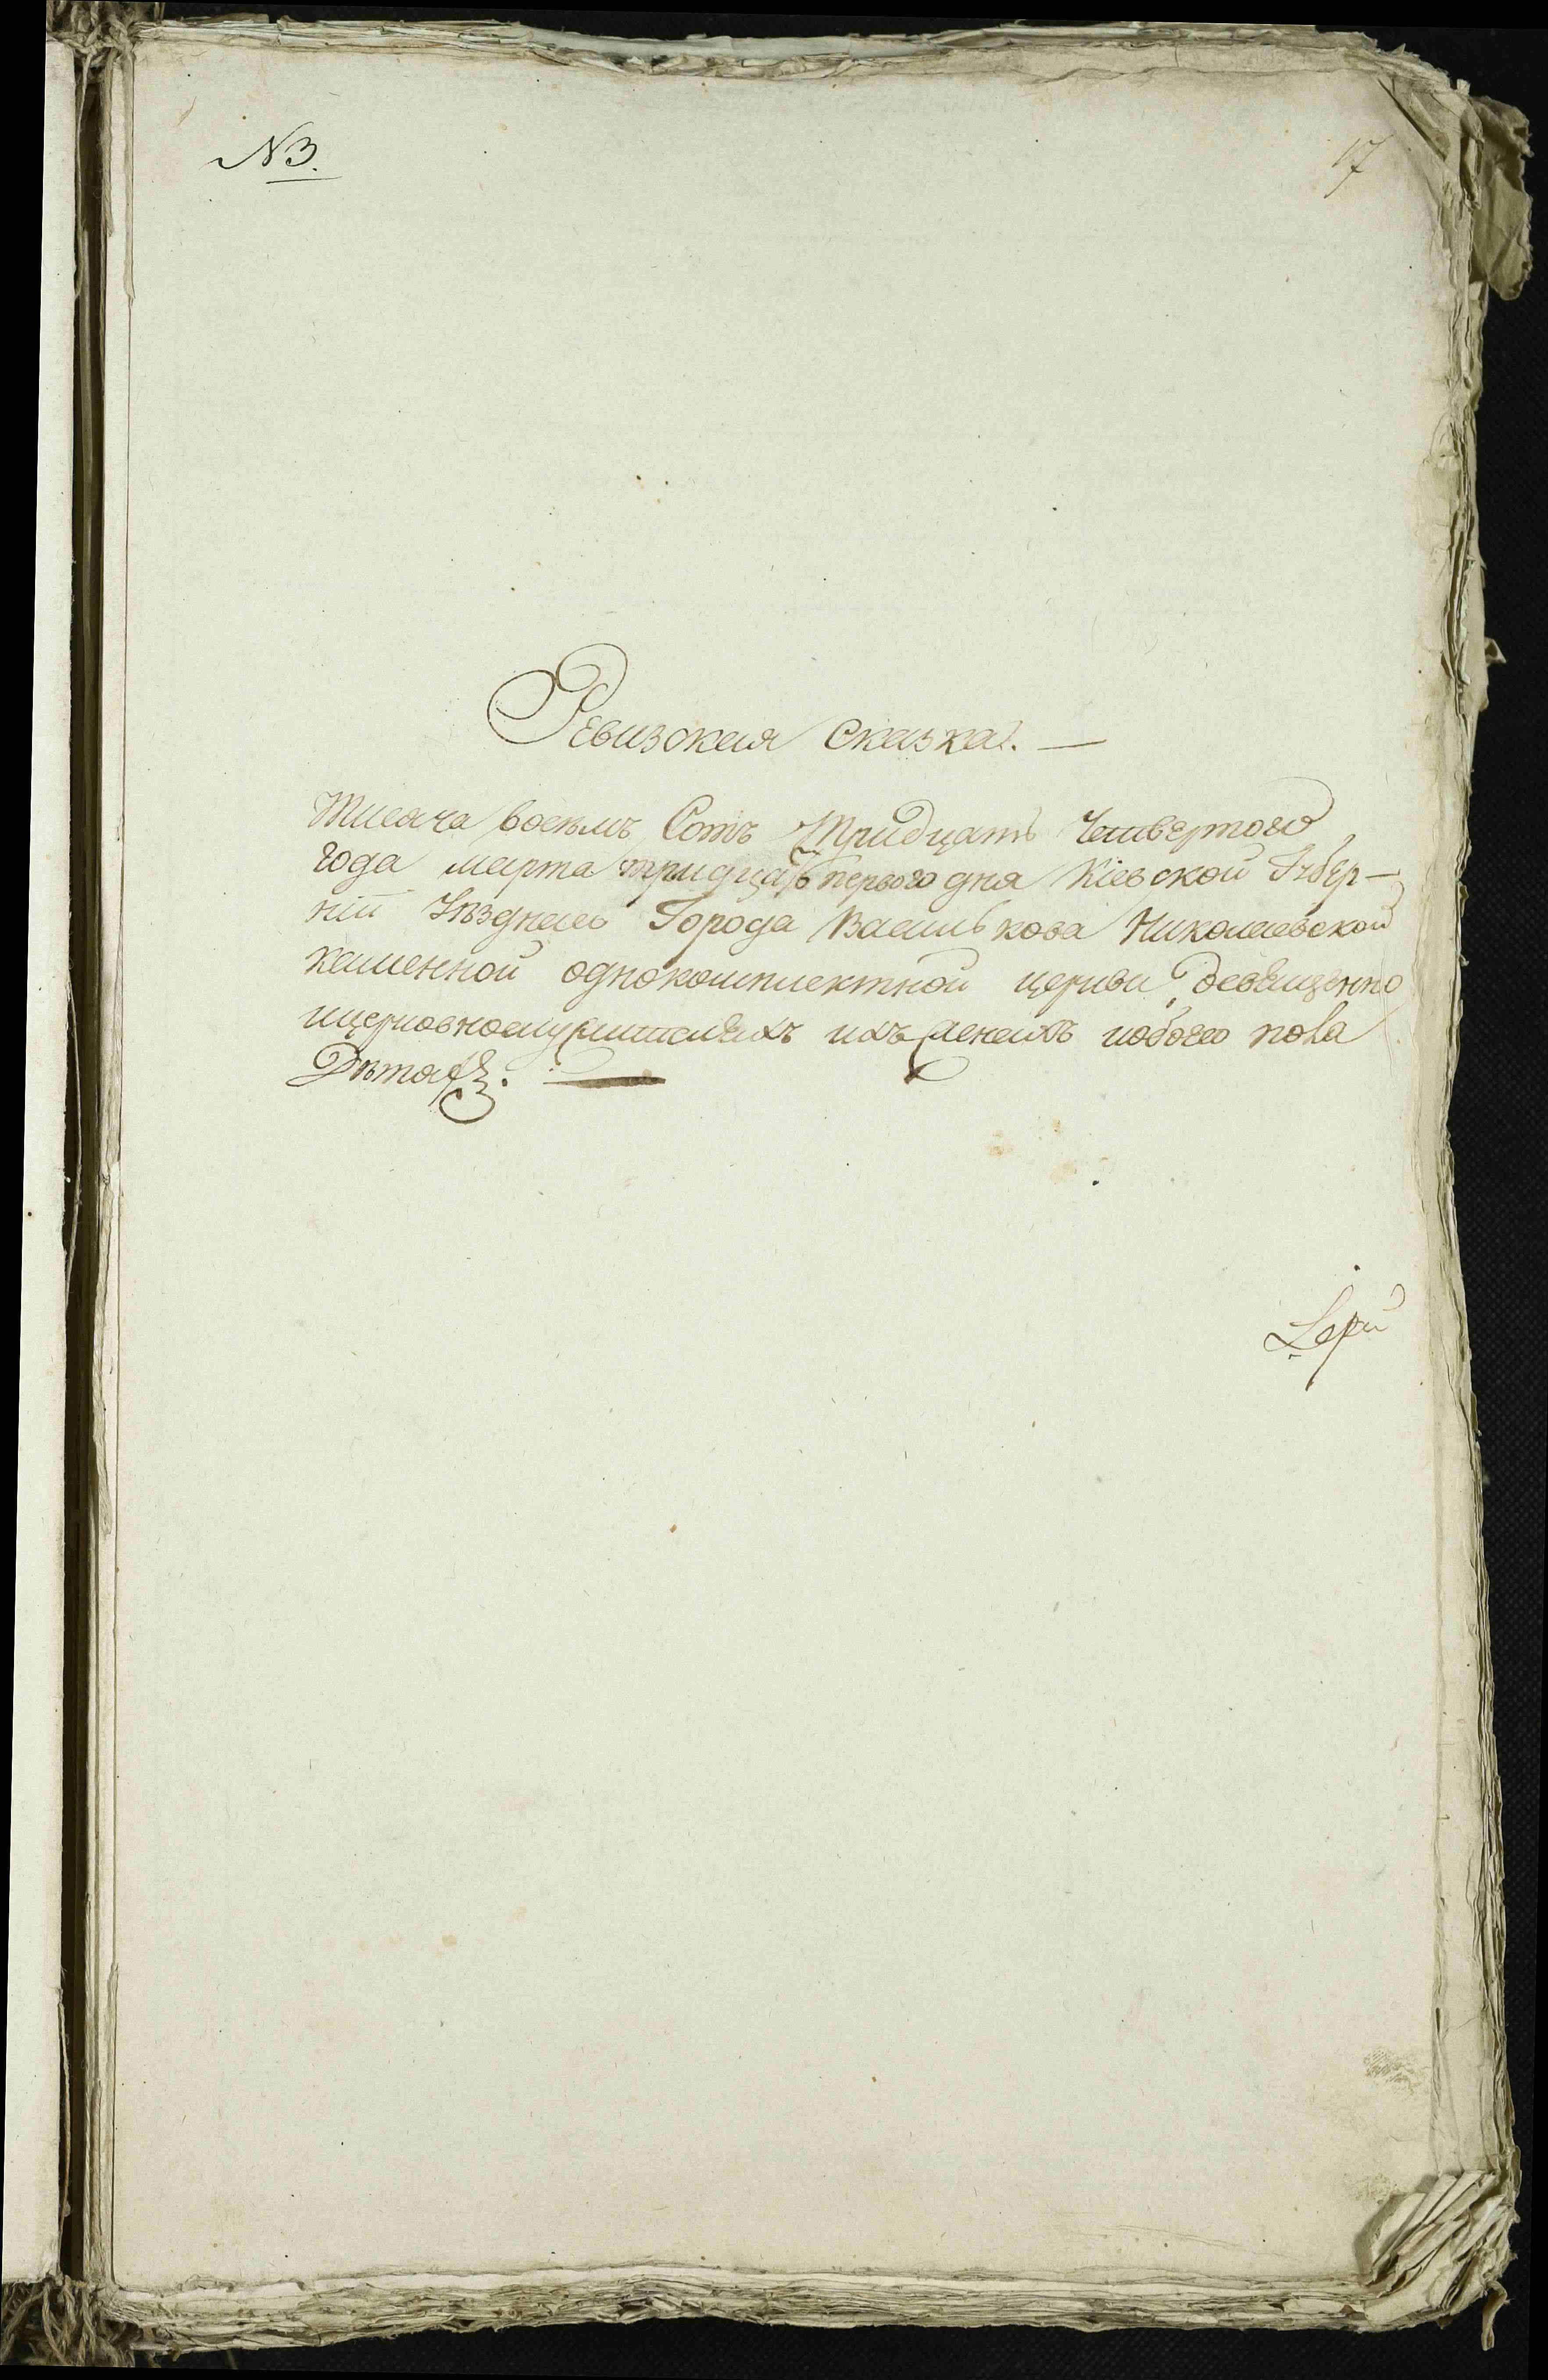 №3.
17
Ревизская Сказка. —
Тисяча восемъ Сотъ Тридцать Четвертого
года марта тридцать первого дня Кіевской Губер-
ніи Уѣзднаго Города Василькова Николаевской
каменной однокомплектной церкви, освященно
ицерковнослужителяхъ ихъ женахъ иобоего пола
Дѣтяхъ. —